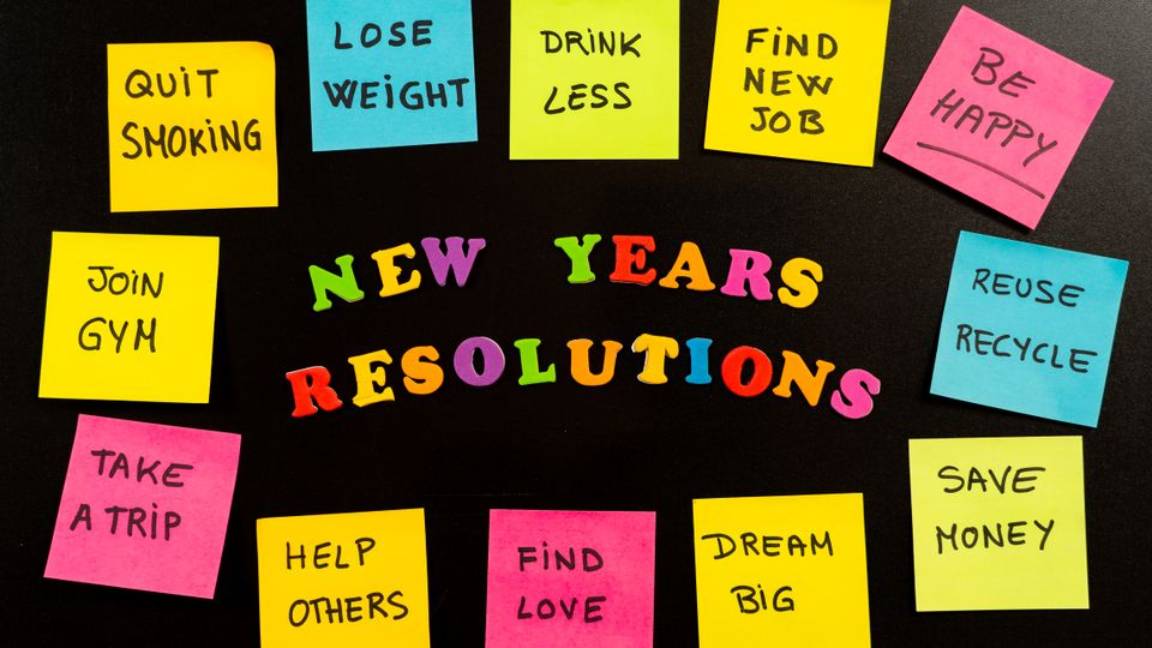 QUiT
SMOKiNG
LOSE
WEiGHT
DRiNK
LESS
FiND
NEW
JOB
BE
HAPPY
JOiN
GYM
NEW YEARS
RESOLUTIONS
REUSE
RECYCLE
TAKE
A TRiP
HELP
OTHERS
FiND
LOVE
DREAM
BiG
SAVE
MONEY